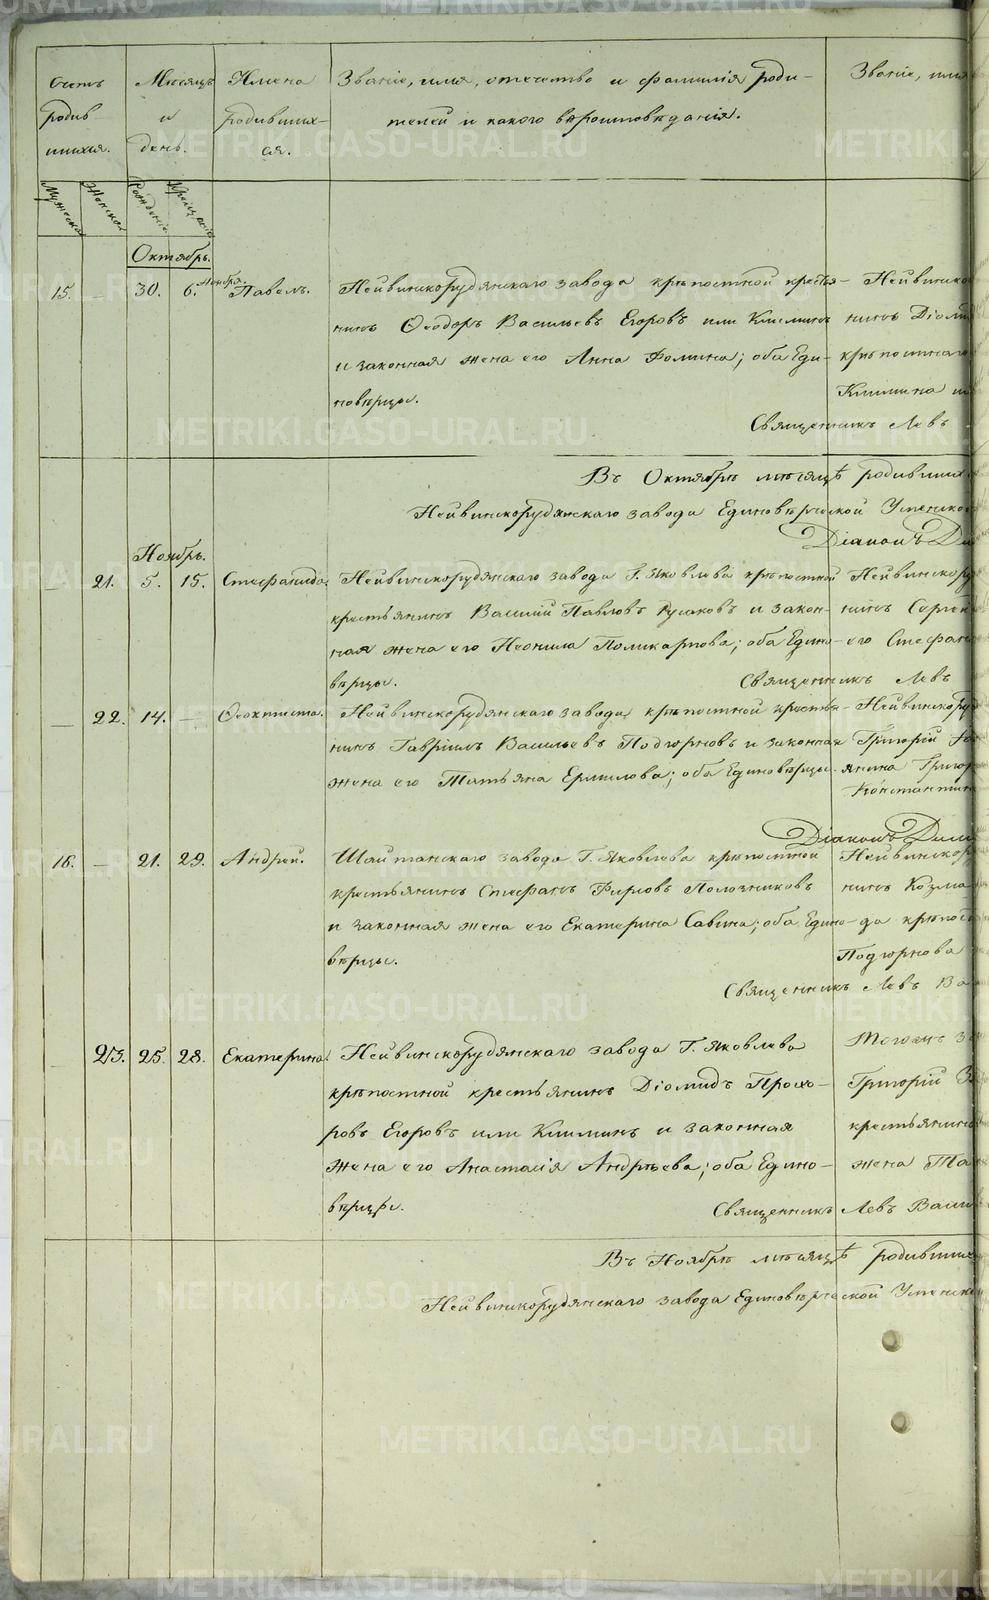 Счетъ
родив-
шихся.
Мѣсяцъ
и
день.
Имена
родивших-
ся.
Званіе, имя, отечество и фамилія роди-
телей и какого вѣроисповѣданія.
Званіе, имя
Мужеска
Женска
Рожденія
Крещенія
Октябрь.
15. — 30. 6. Ноября. Павелъ.
Нейвинскорудянскаго завода крѣпостной крестья-
нинъ Ѳеодоръ Васильевъ Егоровъ или Климинъ
и законная жена его Анна Фомина; оба Еди-
новѣрцы.
Нейвинско
нинъ Діоми
крѣпостнаго
Климина
Священникъ Левъ
Въ Октябрѣ мѣсяцѣ родивших
Нейвинскорудянскаго завода Единовѣрческой Успенско
Діаконъ
Ноябрь.
— 21. 5. 15. Стефанида.
Нейвинскорудянскаго завода Г. Яковлева крѣпостной
крестьянинъ Василий Павловъ Русаковъ и закон-
ная жена его Неонила Поликарпова; оба Едино-
вѣрцы.
Нейвинскору
нинъ Сергѣй
его Стефан
Священникъ Левъ
— 22. 14. — Ѳеоктиста.
Нейвинскорудянскаго завода крѣпостной крестья-
нинъ Гавріилъ Васильевъ Подгорновъ и законная
жена его Татьяна Ермилова; оба Единовѣрцы.
Нейвинскору
Григорій
янина Григор
Константин
Діаконъ
16. — 21. 29. Андрей.
Шайтанскаго завода Г. Яковлева крѣпостной
крестьянинъ Стефанъ Фирсовъ Полозниковъ
и законная жена его Екатерина Савина; оба Едино-
вѣрцы.
Нейвинскор
нинъ Козма
да крѣпос
Подгорнова
Священникъ Левъ Ва
— 23. 25. 28. Екатерина.
Нейвинскорудянскаго завода Г. Яковлева
крѣпостной крестьянинъ Діомидъ Прохо-
ровъ Егоровъ или Климинъ и законная
жена его Анастасія Андрѣева; оба Едино-
вѣрцы.
Тогожъ за
Григорій
крестьянин
жена Та
Священникъ Левъ Васи
Въ Ноябрѣ мѣсяцѣ родивших
Нейвинскорудянскаго завода Единовѣрческой Успенско
METRIKI.GASO-URAL.RU